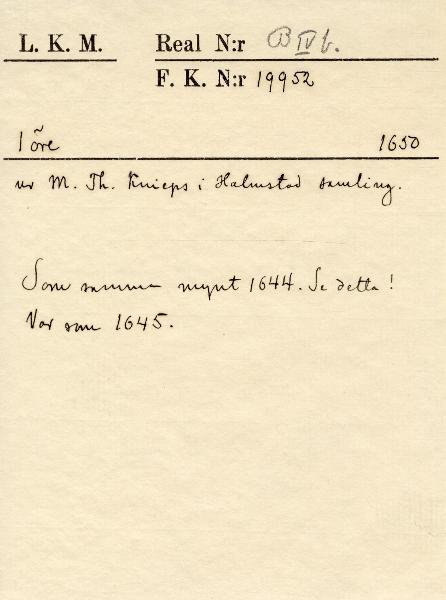 L. K. M. Real N:r B IV b.
F. K. N:r 19952
1 öre 1650
ur M. Th. Knieps i Halmstad samling.
Som samma mynt 1644. Se detta!
Var som 1645.